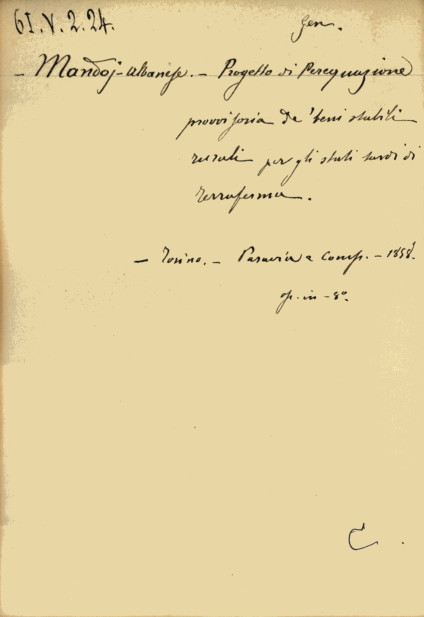 61.V.2.24.
Gen.
- Mandoj-Albanese. - Progetto di Perequazione
provvisoria de' beni stabili
rurali per gli stati sardi di
terraferma.
- Torino. - Paravia e Comp. - 1858.
op. in - 8°.
C